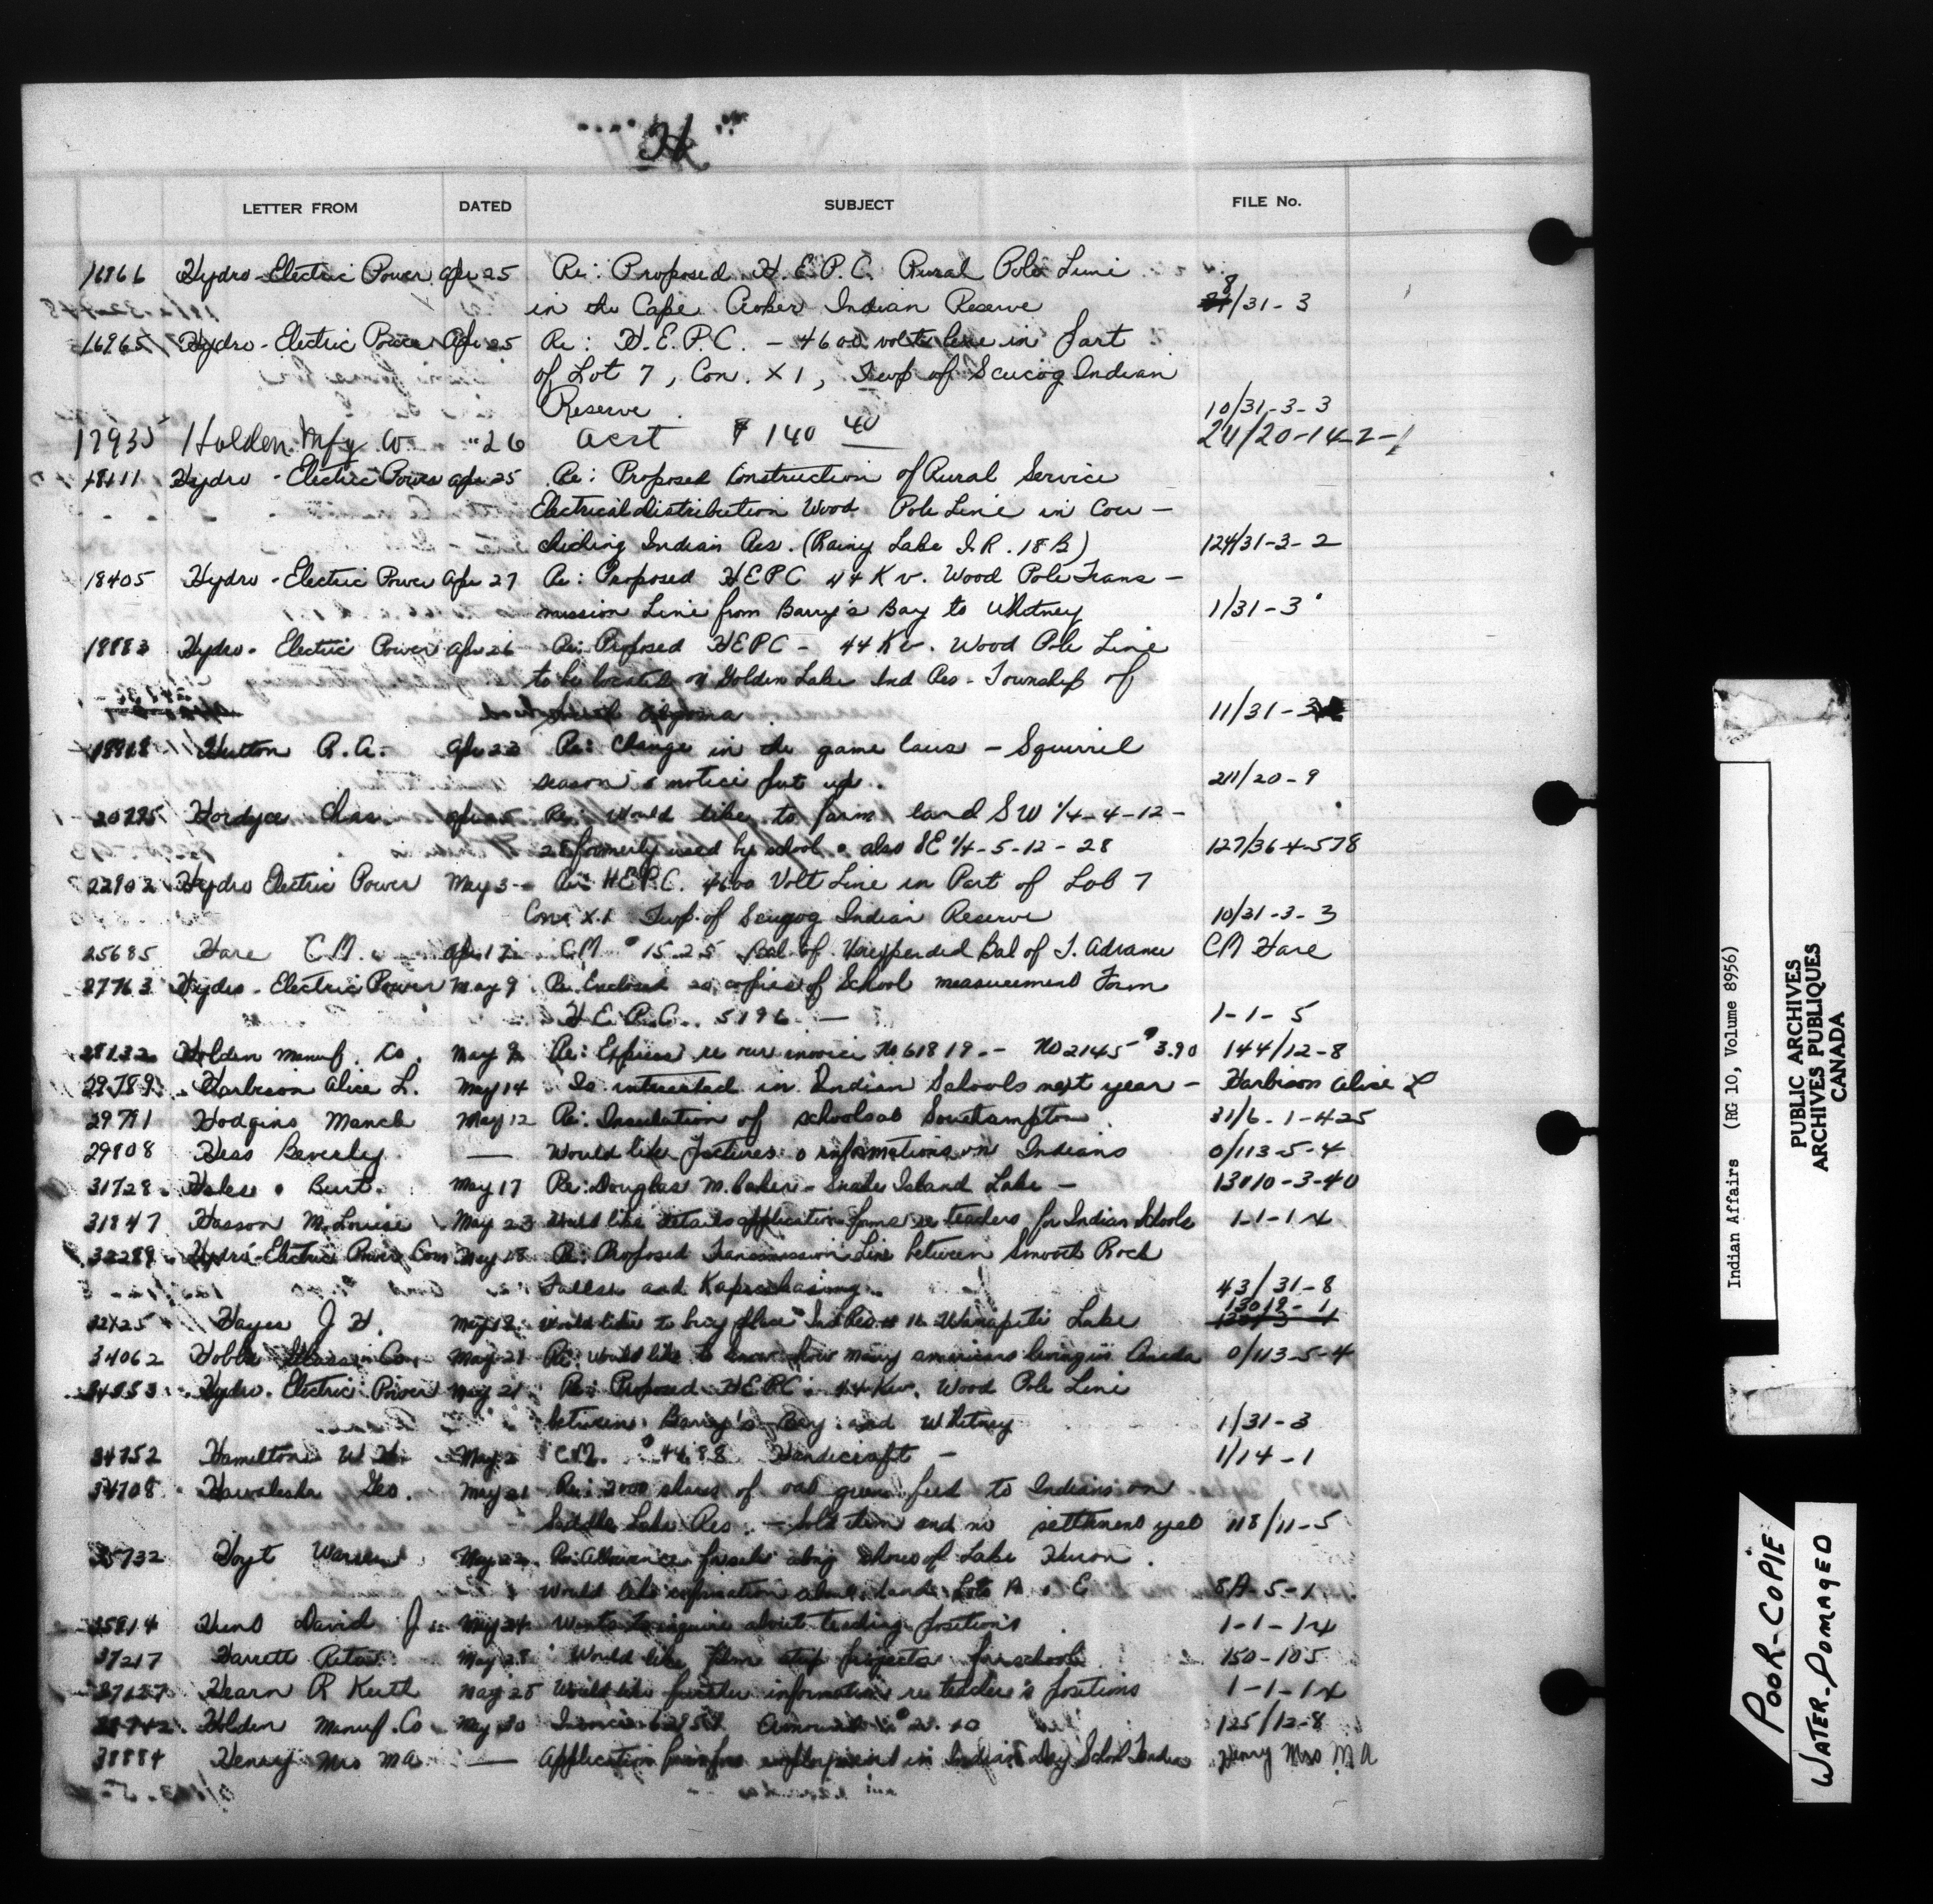 H
LETTER FROM DATED SUBJECT FILE No.
16966 Hydro-Electric Power Apr 25 Re: Proposed H.E.P.C. Rural Pole Line
in the Cape Croker Indian Reserve 8/31-3
16965 Hydro-Electric Power Apr 25 Re: H.E.P.C. - 4600 volts line in part
of Lot 7, Con. X1, Twp of Scucog Indian
Reserve 10/31-3-3
17935 Holden Mfg Co. " 26 Acct $140 40 24/20-14-2-1
18111 Hydro-Electric Power Apr 25 Re: Proposed Construction of Rural Service
Electrical distribution Wood Pole Line in Cou-
chiching Indian Res. (Rainy Lake I.R. 18B) 124/31-3-2
18405 Hydro-Electric Power Apr 27 Re: Proposed HEPC 44 Kv. Wood Pole Trans-
mission Line from Barry's Bay to Whitney 1/31-3
18883 Hydro-Electric Power Apr 26 Re: Proposed HEPC - 44 Kv. Wood Pole Line
to be located on Golden Lake Ind Res - Township of
Algona 11/31-3
Hutton R.A. Apr 23 Re: Change in the game laws - Squirrel
season & notice put up. 211/20-9
20295 Hordyce Chas. Apr 25 Re: Would like to farm land SW 1/4-4-12-
28 formerly used by school & also SE 1/4-5-12-28 127/36-4-578
22902 Hydro Electric Power May 3 Re: H.E.P.C. 4600 Volt Line in Part of Lot 7
Con. X.1 Twp. of Scugog Indian Reserve 10/31-3-3
25685 Hare C.M. Apr 17 C.M. $15.25 Bal of Unexpended Bal of T. Advance CM Hare
27763 Hydro-Electric Power May 9 Re Enclosed 20 copies of School measurement Form
H.E.P.C. 5196 - 1-1-5
28132 Holden Manuf. Co. May 9 Re: Express re our invoice No 61819 - No 2145 - $3.90 144/12-8
29789 Harbison Alice L. May 14 Is interested in Indian Schools next year - Harbison Alice L
29791 Hodgins Manch May 12 Re: Insulation of schools at Southampton 31/6-1-425
29808 Hess Beverly — Would like pictures & information on Indians 0/113-5-4
31728 Hales Burt. May 17 Re: Douglas M. Baker - Snake Island Lake - 13010-3-40
31847 Hasson M. Louise May 23 Would like details application forms re teachers for Indian Schools 1-1-14
32289 Hydro-Electric Power Com May 18 Re: Proposed Transmission Line between Smooth Rock
Falls and Kapuskasing 43/31-8
32425 Hayes J H. May 18 Would like to buy place Ind Res # 11 Wanapitei Lake 13019-1
34062 Hobbs Glass Co. May 21 Re: Would like to know how many americans living in Canada 0/113-5-4
Hydro-Electric Power May 21 Re: Proposed HEPC 44 Kv. Wood Pole Line
between Barry's Bay and Whitney 1/31-3
34752 Hamilton W.H. May 2 C.M. $44.88 Handicraft - 1/14-1
34708 Geo. May 21 Re: 2000 of oat green feed to Indians on
Saddle Lake Res. - Sold them and no settlement yet 118/11-5
35732 Hoyt Warren May 22 Re: Allowance along shore of Lake Huron.
Would like information lands Lots A & E 8A-5-1
35814 David J. May 24 Wants to inquire about teaching positions 1-1-14
37217 Harrett Rita May 28 Would like film strip projector for school 150-105
37127 Hearn R Keith May 25 Would like further information re teacher's positions 1-1-14
Holden Manuf. Co May 30 Invoice 125/12-8
38884 Henry Mrs MA — Application form for employment in Indian Day School Teacher Henry Mrs M A
Indian Affairs (RG 10, Volume 8956)
PUBLIC ARCHIVES
ARCHIVES PUBLIQUES
CANADA
POOR-COPIE
WATER-DOMAGED